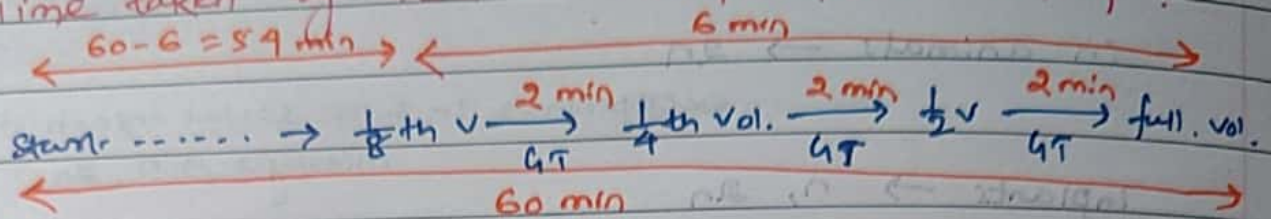 Time taken
60-6=54 min 6 min
Start ...... → 1/8 th v 2 min → GT 1/4 th vol. 2 min → GT 1/2 v 2 min → GT full. vol.
60 min